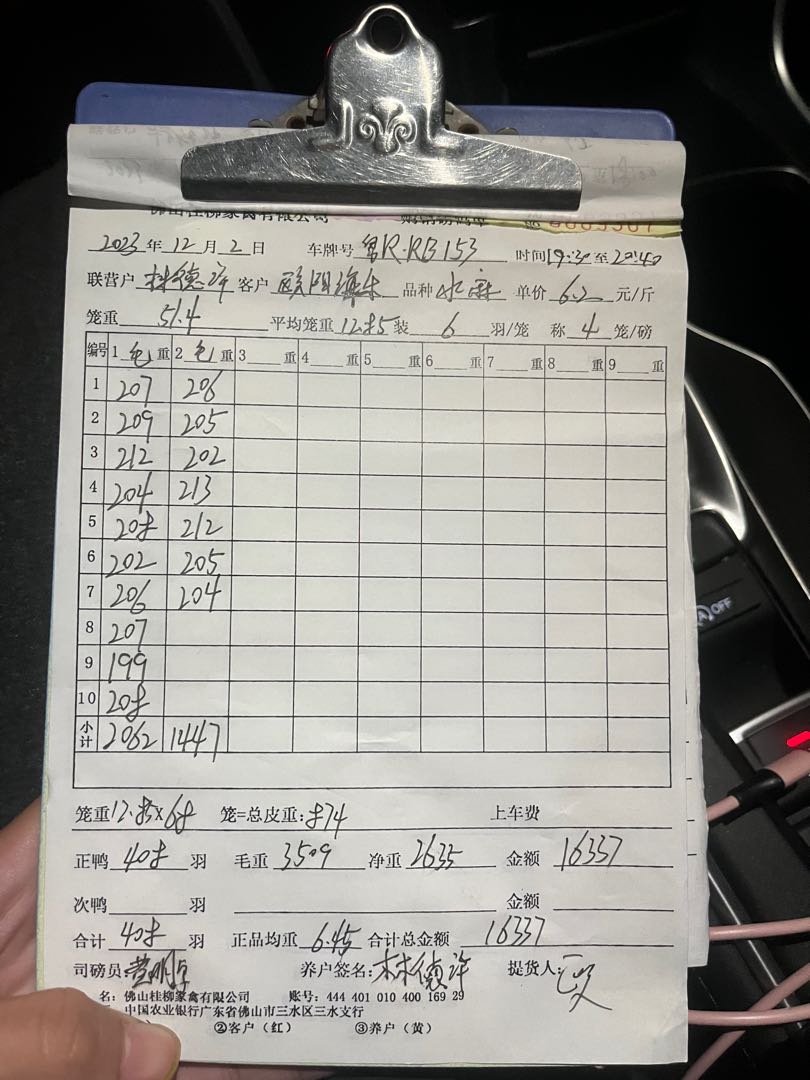 佛山桂柳家禽有限公司
2023年12月2日 车牌号 粤R·RB153 时间19:30至20:40
联营户 林德许 客户 欧阳海 品种 水 单价 6.2 元/斤
笼重 51.4 平均笼重 12.85 装 6 羽/笼 称 4 笼/磅
编号 1 重 2 重 3 重 4 重 5 重 6 重 7 重 8 重 9 重
1 207 206
2 209 205
3 212 202
4 204 213
5 208 212
6 202 205
7 206 204
8 207
9 199
10 208
小计 2062 1447
笼重12.85×68 笼=总皮重:874 上车费
正鸭 408 羽 毛重 3509 净重 2635 金额 16337
次鸭 羽 金额
合计 408 羽 正品均重 6.45 合计总金额 16337
司磅员: 养户签名:林德许 提货人:
名: 佛山桂柳家禽有限公司 账号: 444 401 010 400 169 29
中国农业银行广东省佛山市三水区三水支行
②客户(红) ③养户(黄)
OFF